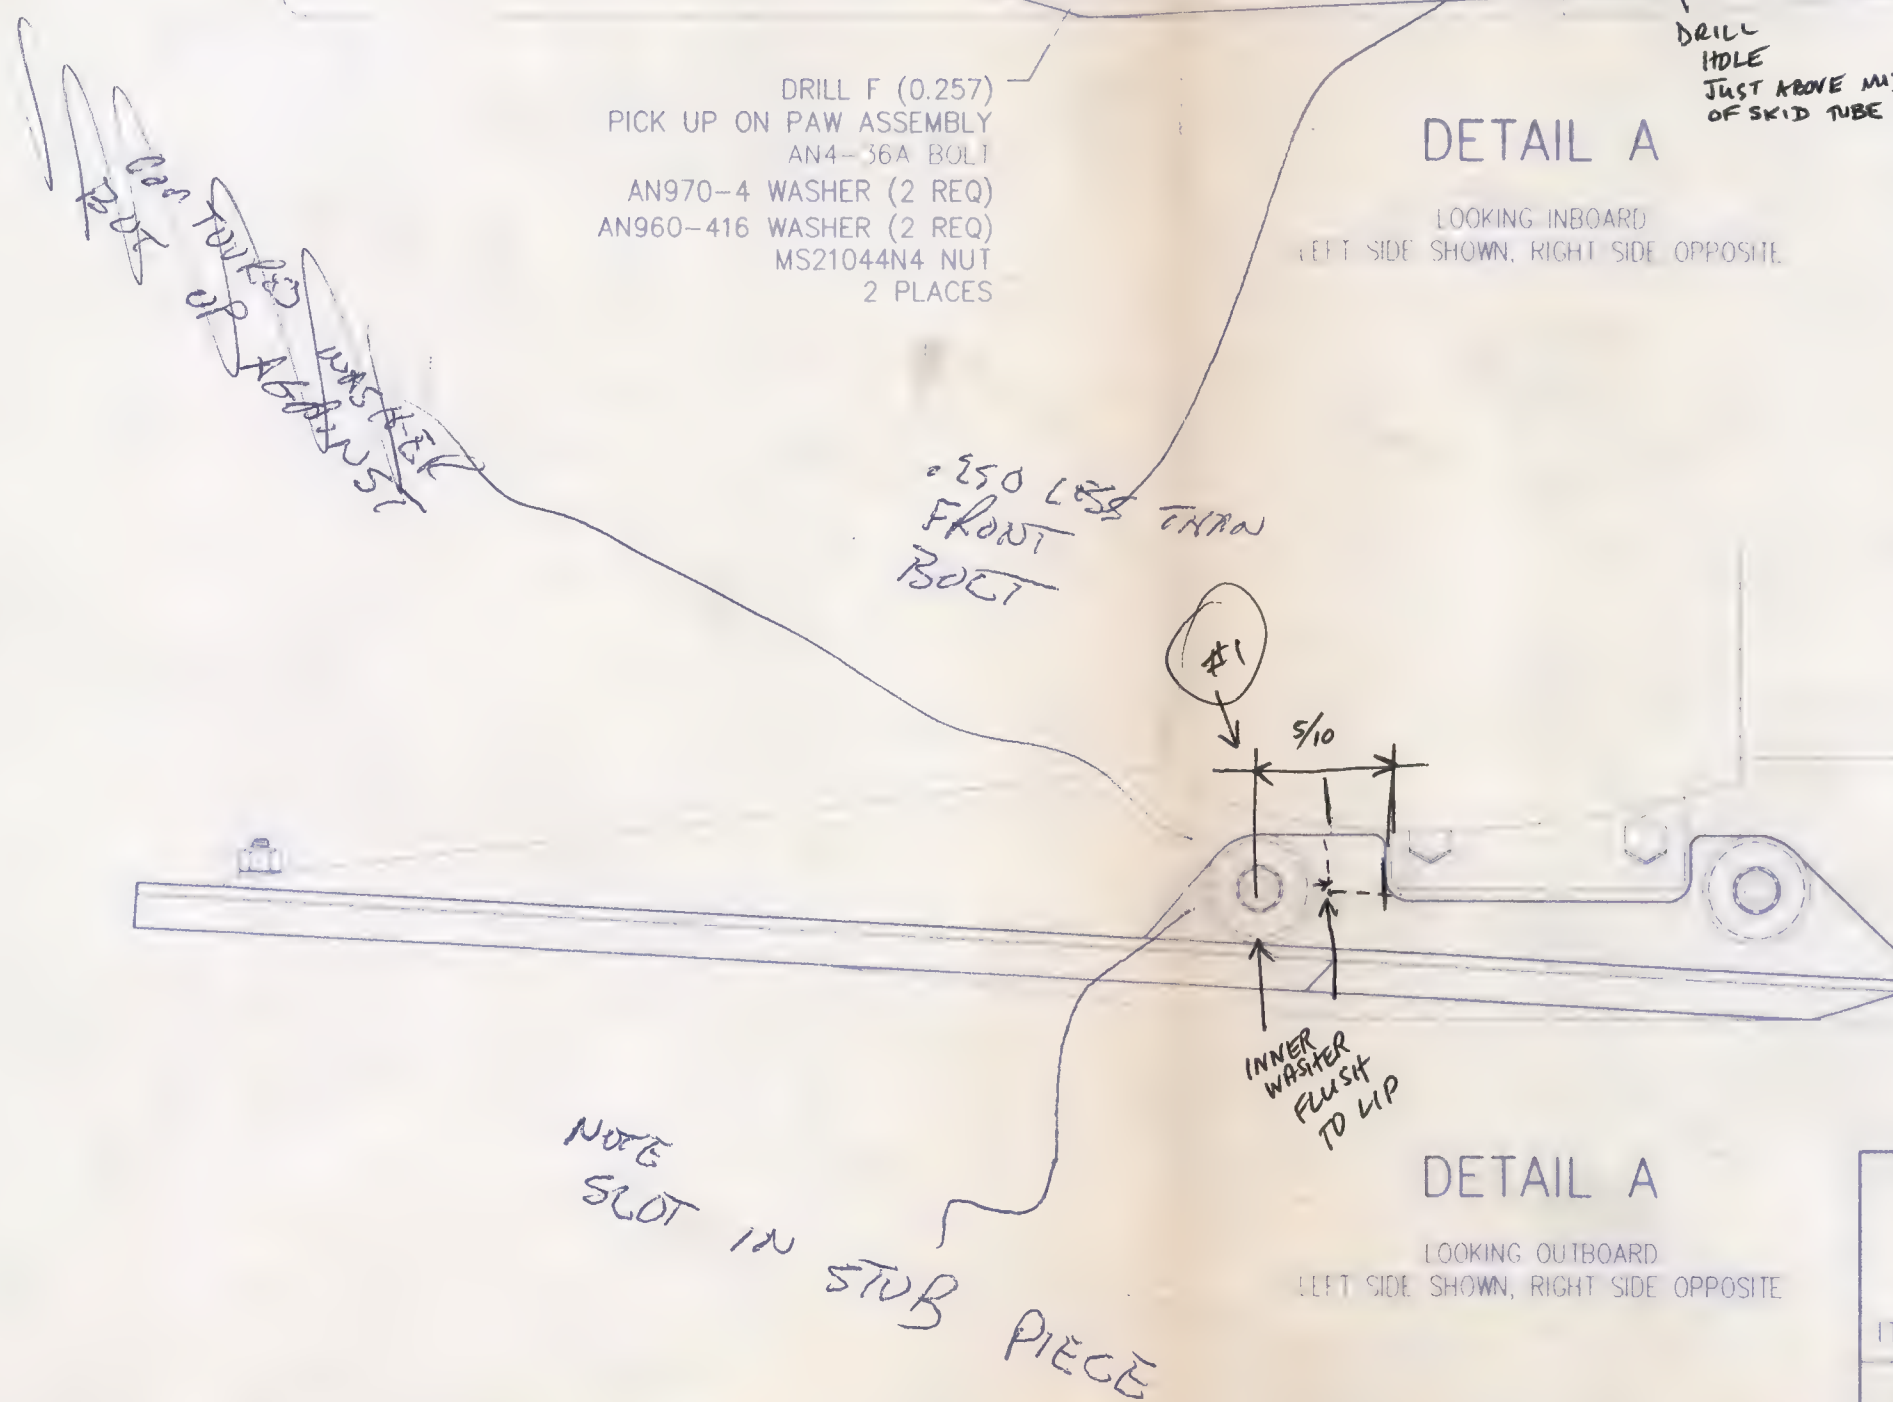 DRILL
HOLE
JUST ABOVE
OF SKID TUBE
DRILL F (0.257)
PICK UP ON PAW ASSEMBLY
AN4-36A BOLT
AN970-4 WASHER (2 REQ)
AN960-416 WASHER (2 REQ)
MS21044N4 NUT
2 PLACES
DETAIL A
LOOKING INBOARD
LEFT SIDE SHOWN, RIGHT SIDE OPPOSITE
WASHER
UP AGAINST
LESS THAN
FRONT
BOLT
#1
5/10
INNER
WASHER
FLUSH
TO LIP
NOTE
SLOT IN STUB PIECE
DETAIL A
LOOKING OUTBOARD
LEFT SIDE SHOWN, RIGHT SIDE OPPOSITE